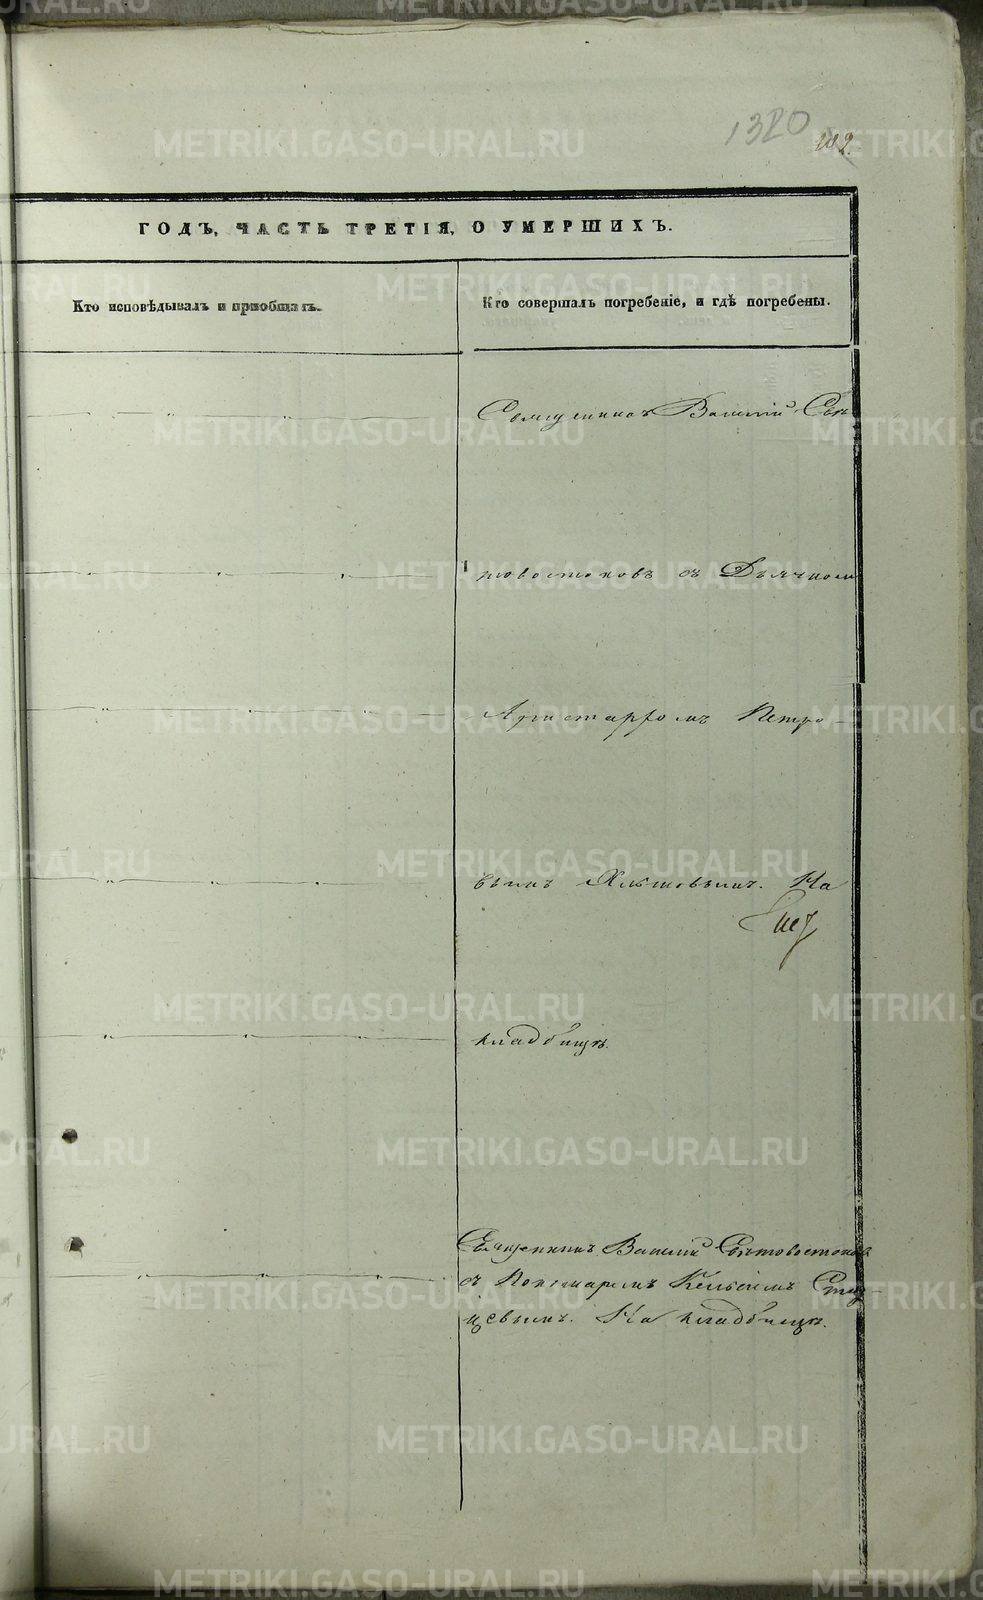 1320
102.
ГОДЪ, ЧАСТЬ ТРЕТІЯ, О УМЕРШИХЪ.
Кто исповѣдывалъ и пріобщалъ.
Кто совершалъ погребеніе, и гдѣ погребены.
Священникъ Василій Свѣ
товостоковъ съ Дьячкомъ
Аристархомъ Петро-
вымъ На
кладбищѣ.
Священникъ Василій Свѣтовостоковъ
съ Пономаремъ
щевымъ. На кладбищѣ.
METRIKI.GASO-URAL.RU